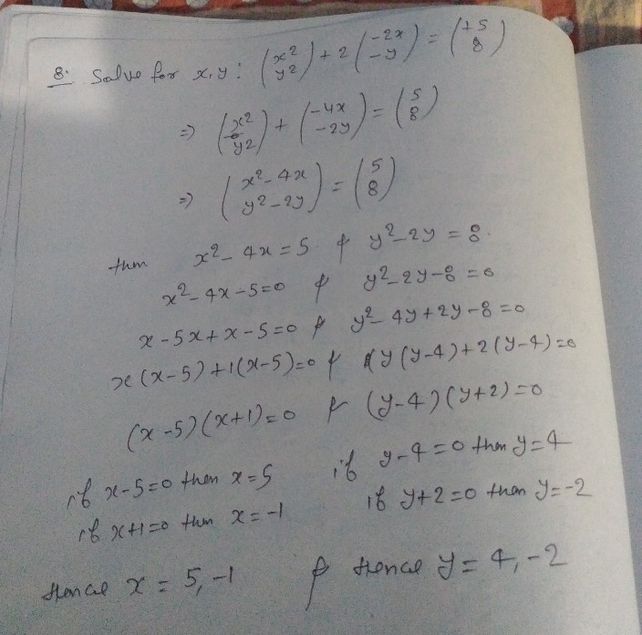 8. Solve for x, y : (x² y²) + 2 (-2x -y) = (+5 8)
⇒ (x² y²) + (-4x -2y) = (5 8)
⇒ (x² - 4x y² - 2y) = (5 8)
then x² - 4x = 5 & y² - 2y = 8.
x² - 4x - 5 = 0 & y² - 2y - 8 = 0
x - 5x + x - 5 = 0 & y² - 4y + 2y - 8 = 0
x(x-5) + 1(x-5) = 0 & y(y-4) + 2(y-4) = 0
(x-5)(x+1) = 0 & (y-4)(y+2) = 0
if x-5=0 then x=5 if y-4=0 then y=4
if x+1=0 then x=-1 if y+2=0 then y=-2
Hence x = 5, -1 & Hence y = 4, -2